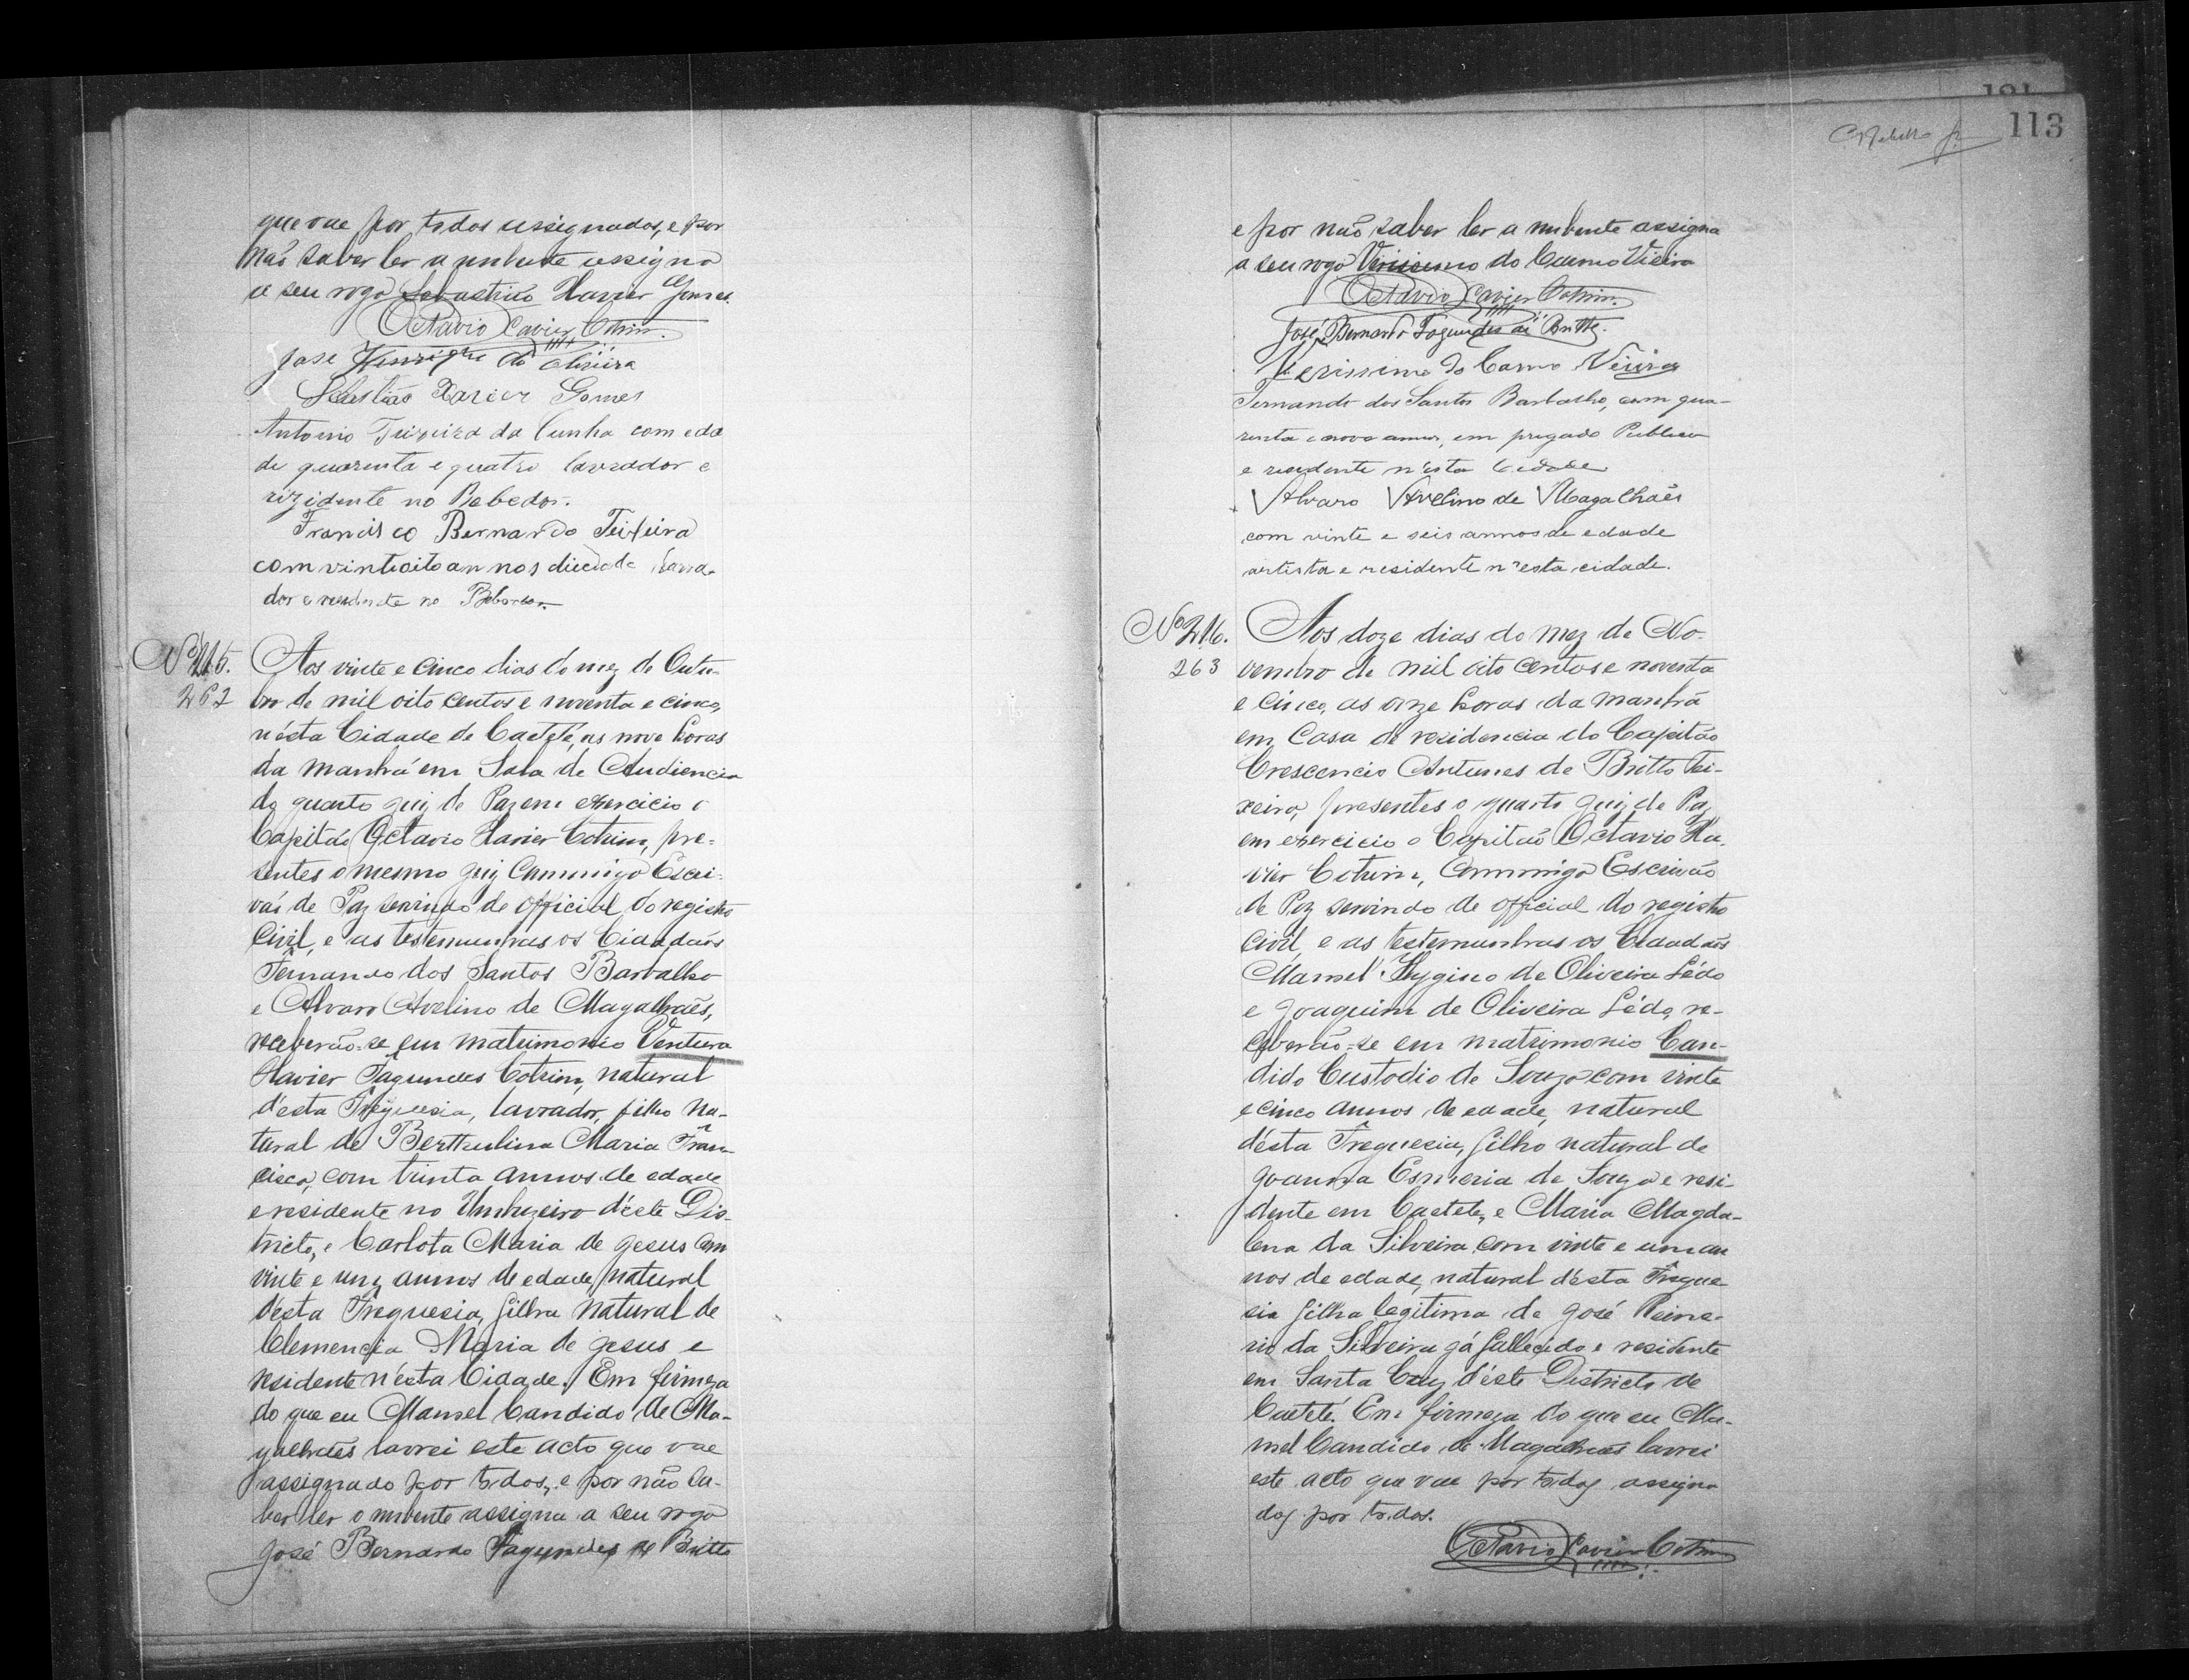 que vae por todos assignados, e por
não saber ler a nubente assigna
a seu rogo Sebastião Xavier Gomes.
Octavio Xavier Cotrim.
José Henrique de Oliveira
Sebastião Xavier Gomes
Antonio Teixeira da Cunha com eda
de quarenta e quatro lavrador e
rizidente no Bebedor.
Francisco Bernardo Teixeira
com vinti oito annos di edade lavra-
dor e residente no Bebedor.
Nº 215.
262
Aos vinte e cinco dias do mez de Outu-
bro de mil oito centos e noventa e cinco,
n'ésta Cidade de Caeteté, as nove horas
da manhã em Sala de Audiencia
do quarto juiz de Paz em exercicio o
Capitão Octavio Xavier Cotrim, pre-
sentes o mesmo juiz Commigo Escri-
vão de Paz servindo de official do registro
Civil, e as testemunhas os Cidadãos
Fernando dos Santos Barbalho
e Alvaro Avelino de Magalhães,
receberão-se em matrimonio Ventura
Xavier Fagundes Cotrim, natural
d'esta Freguesia, lavrador, filho na-
tural de Berthulina Maria Fran-
cisca, com trinta annos de edade
e residente no Umbuzeiro d'éste Dis-
tricto, e Carlota Maria de Jesus com
vinte e um annos de edade, natural
d'ésta Freguesia, filha natural de
Clemencia Maria de Jesus e
residente n'ésta Cidade. Em firmeza
do que eu Manoel Candido de Ma-
galhães lavrei este acto que vae
assignado por todos, e por não sa-
ber ler o nubente assigna a seu rogo
José Bernardo Fagundes de Britto
113
e por não saber ler a nubente assigna
a seu rogo Verissimo do Carmo Vieira
Octavio Xavier Cotrim.
José Bernardo Fagundes de Britto.
Verissimo do Carmo Vieira
Fernando dos Santos Barbalho, com qua-
renta e nove annos, em pregado Publico
e residente n'esta Cidade
Alvaro Avelino de Magalhães
com vinte e seis annos de edade
artista e residente n'esta cidade.
Nº 216.
263
Aos doze dias do mez de No-
vembro de mil oito centos e noventa
e cinco, as onze horas da manhã
em Casa de residencia do Capitão
Crescencio Antunes de Britto Tei-
xeira, presentes o quarto juiz de Paz
em exercicio o Capitão Octavio Xa-
vier Cotrim, Commigo Escrivão
de Paz servindo de official do registro
Civil, e as testemunhas os Cidadãos
Manoel Hygino de Oliveira Lédo
e Joaquim de Oliveira Lédo, re-
ceberão-se em matrimonio Can-
dido Custodio de Souza com vinte
e cinco annos de edade, natural
d'ésta Freguesia, filho natural de
Joanna Esmeria de Souza e resi-
dente em Caeteté, e Maria Magda-
lena da Silveira, com vinte e um an
nos de edade, natural d'ésta Fregue
sia filha legitima de José Reina-
rio da Silveira já fallecido e residente
em Santa Cruz d'éste Districto de
Caeteté. Em firmeza do que eu Ma-
noel Candido de Magalhães lavrei
este acto que vae por todos assigna
dos por todos.
Octavio Xavier Cotrim